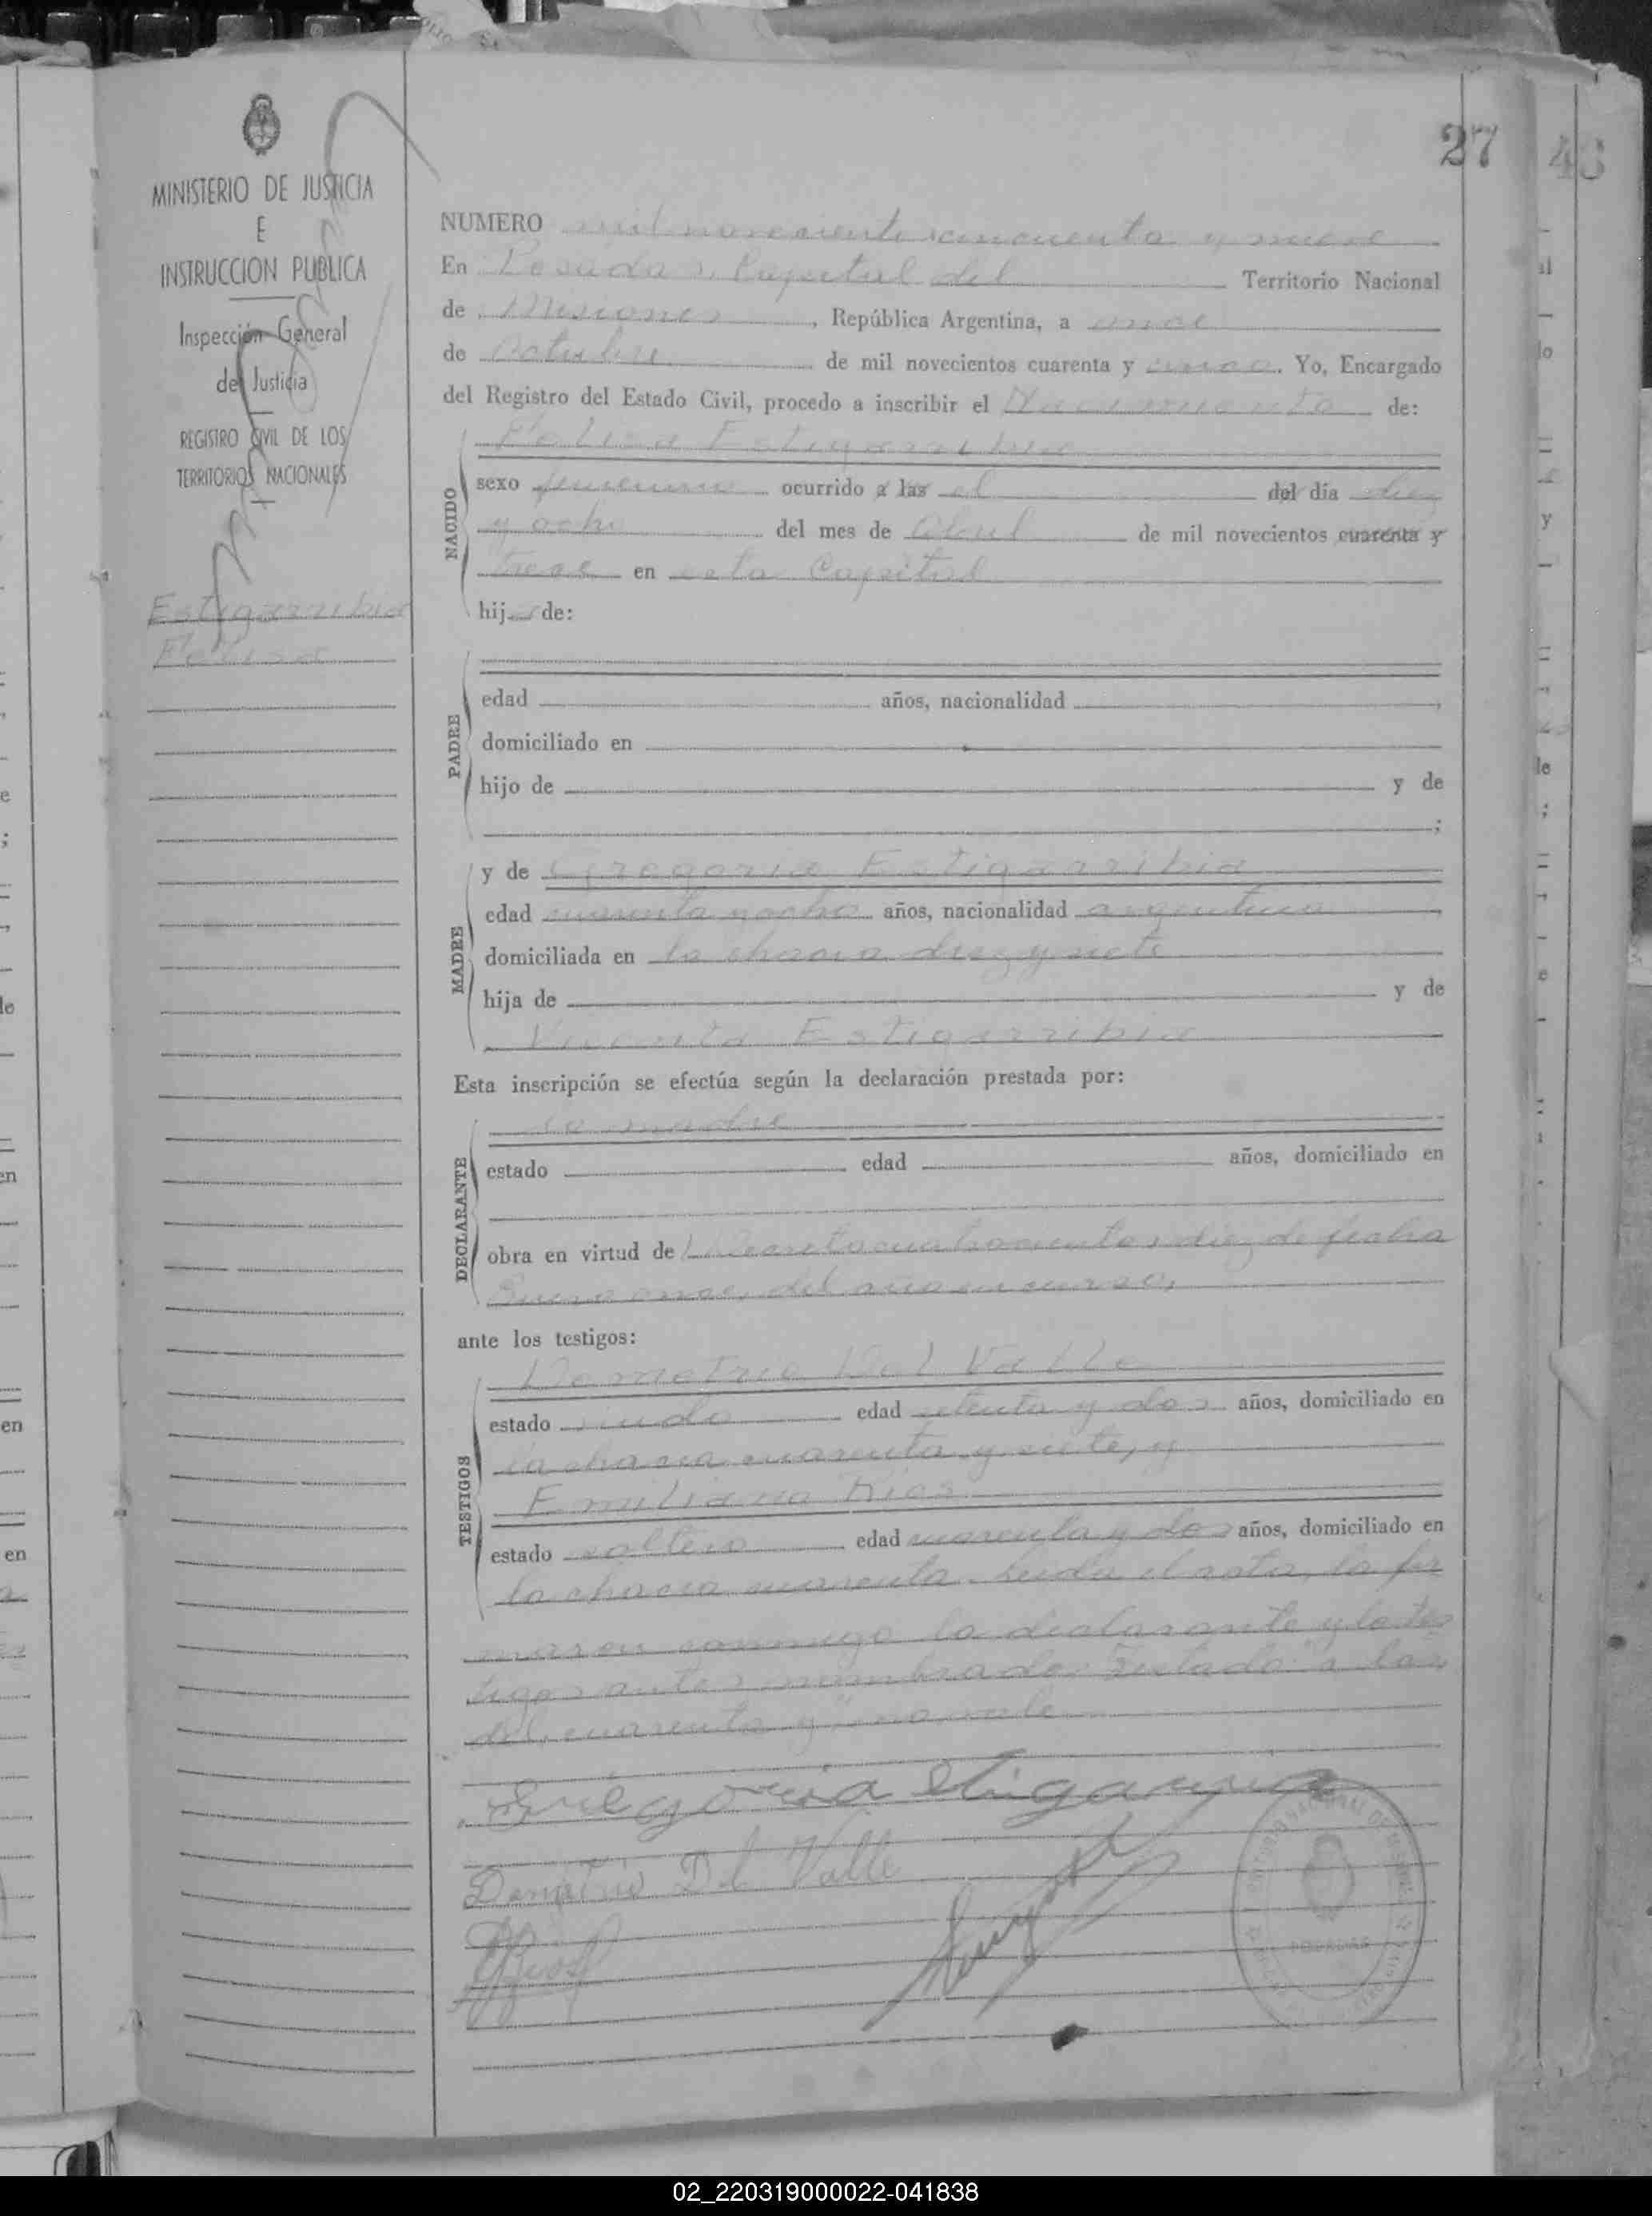 27
MINISTERIO DE JUSTICIA
E
INSTRUCCION PUBLICA
Inspección General
de Justicia
REGISTRO CIVIL DE LOS
TERRITORIOS NACIONALES
Estigarribia
Felisa
NUMERO mil novecientos cincuenta y nueve
En Posadas, Capital del Territorio Nacional
de Misiones, República Argentina, a once
de octubre de mil novecientos cuarenta y cinco. Yo, Encargado
del Registro del Estado Civil, procedo a inscribir el Nacimiento de:
NACIDO
Felisa Estigarribia
sexo femenino ocurrido a las el del día diez
y ocho del mes de Abril de mil novecientos cuarenta y
trece en esta Capital
hija de:
PADRE
edad años, nacionalidad
domiciliado en
hijo de y de
;
MADRE
y de Gregoria Estigarribia
edad cuarenta y ocho años, nacionalidad argentina
domiciliada en la chacra diez y siete
hija de y de
Vicenta Estigarribia
Esta inscripción se efectúa según la declaración prestada por:
DECLARANTE
la madre
estado edad años, domiciliado en
obra en virtud de Decreto cuatrocientos diez de fecha
Enero once, del año en curso,
ante los testigos:
TESTIGOS
Demetrio Del Valle
estado viudo edad setenta y dos años, domiciliado en
la chacra cuarenta y siete, y
Emiliano Rios
estado soltero edad cuarenta y dos años, domiciliado en
la chacra cuarenta. Leida el acta, la fir
maron conmigo la declarante y los tes
tigos antes nombrados. Testado: "a las,
del, cuarenta y" no vale
Gregoria
Demetrio Del Valle
POSADAS
02_220319000022-041838